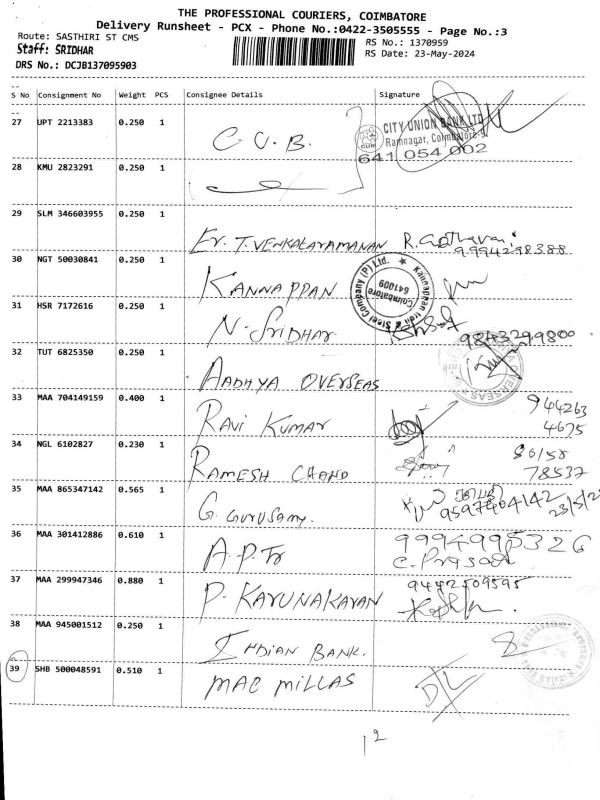 THE PROFESSIONAL COURIERS, COIMBATORE
Delivery Runsheet - PCX - Phone No.:0422-3505555 - Page No.:3
Route: SASTHIRI ST CMS
RS No.: 1370959
Staff: SRIDHAR
RS Date: 23-May-2024
DRS No.: DCJB137095903
S No Consignment No Weight PCS Consignee Details Signature
27 UPT 2213383 0.250 1 C.U.B. CITY UNION BANK LTD
Ramnagar, Coimbatore-9
641 054 002
28 KMU 2823291 0.250 1
29 SLM 346603955 0.250 1 Er. T. VENKATARAMANAN
9994298388
30 NGT 50030841 0.250 1 KANNAPPAN
Kannappan Iron & Steel Company (P) Ltd. Coimbatore 641009
31 HSR 7172616 0.250 1 N. SRIDHAR
9843299800
32 TUT 6825350 0.250 1 AADHYA OVERSEAS
OVERSEAS
33 MAA 704149159 0.400 1 RAVI KUMAR 944263
4675
34 NGL 6102827 0.230 1 RAMESH CHAND
78537
35 MAA 865347142 0.565 1 G. GURUSAMY. 9597404142
36 MAA 301412886 0.610 1 A.P.Tr 9994995326
C. Prasad
37 MAA 299947346 0.880 1 P. KARUNAKARAN 9442509595
38 MAA 945001512 0.250 1 INDIAN BANK.
39 SHB 500048591 0.510 1 MAC MILLAS
12